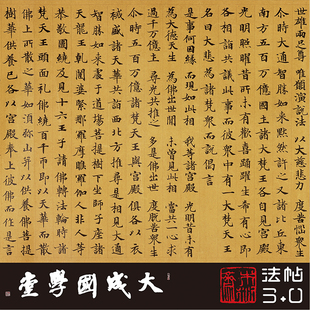 世雄兩足尊 唯願演說法 以大慈悲力 度苦惱眾生
尒時大通智勝如來默然許之又諸比丘東
南方五百万億國土諸大梵王各自見宮殿
光明照曜昔所未有歡喜踊躍生希有心即
各相詣共議此事而彼眾中有一大梵天王
名曰大悲為諸梵眾而說偈言
是事何因緣 而現如此相 我等諸宮殿 光明昔未有
為大德天生 為佛出世間 未曾見此相 當共一心求
過千万億土 尋光共推之 多是佛出世 度脫苦眾生
尒時五百万億諸梵天王與宮殿俱各以衣
裓盛諸天華共詣西北方推尋是相見大通
智勝如來處于道場菩提樹下坐師子座諸
天龍王乾闥婆緊那羅摩睺羅伽人非人等
恭敬圍繞及見十六王子請佛轉法輪時諸
梵天王頭面礼佛繞百千帀即以天華而散
佛上所散之華如須弥山并以供養佛菩提
樹華供養已各以宮殿奉上彼佛而作是言
大成國學堂
法帖
3.0